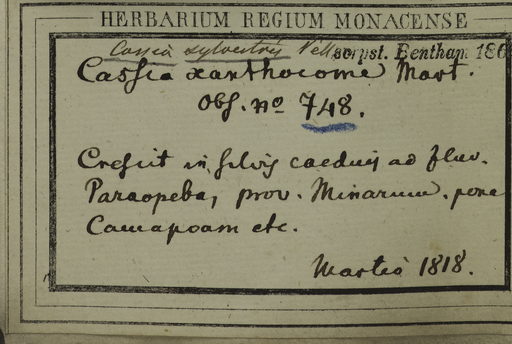 HERBARIUM REGIUM MONACENSE
Cassia sylvestris Vell. scrpst. Bentham 186
Cassia xanthocoma Mart.
Obs. no 748.
Crescit in silvis caeduis ad fluv.
Paraopeba, prov. Minarum. pone
Camapoam etc.
Martio 1818.